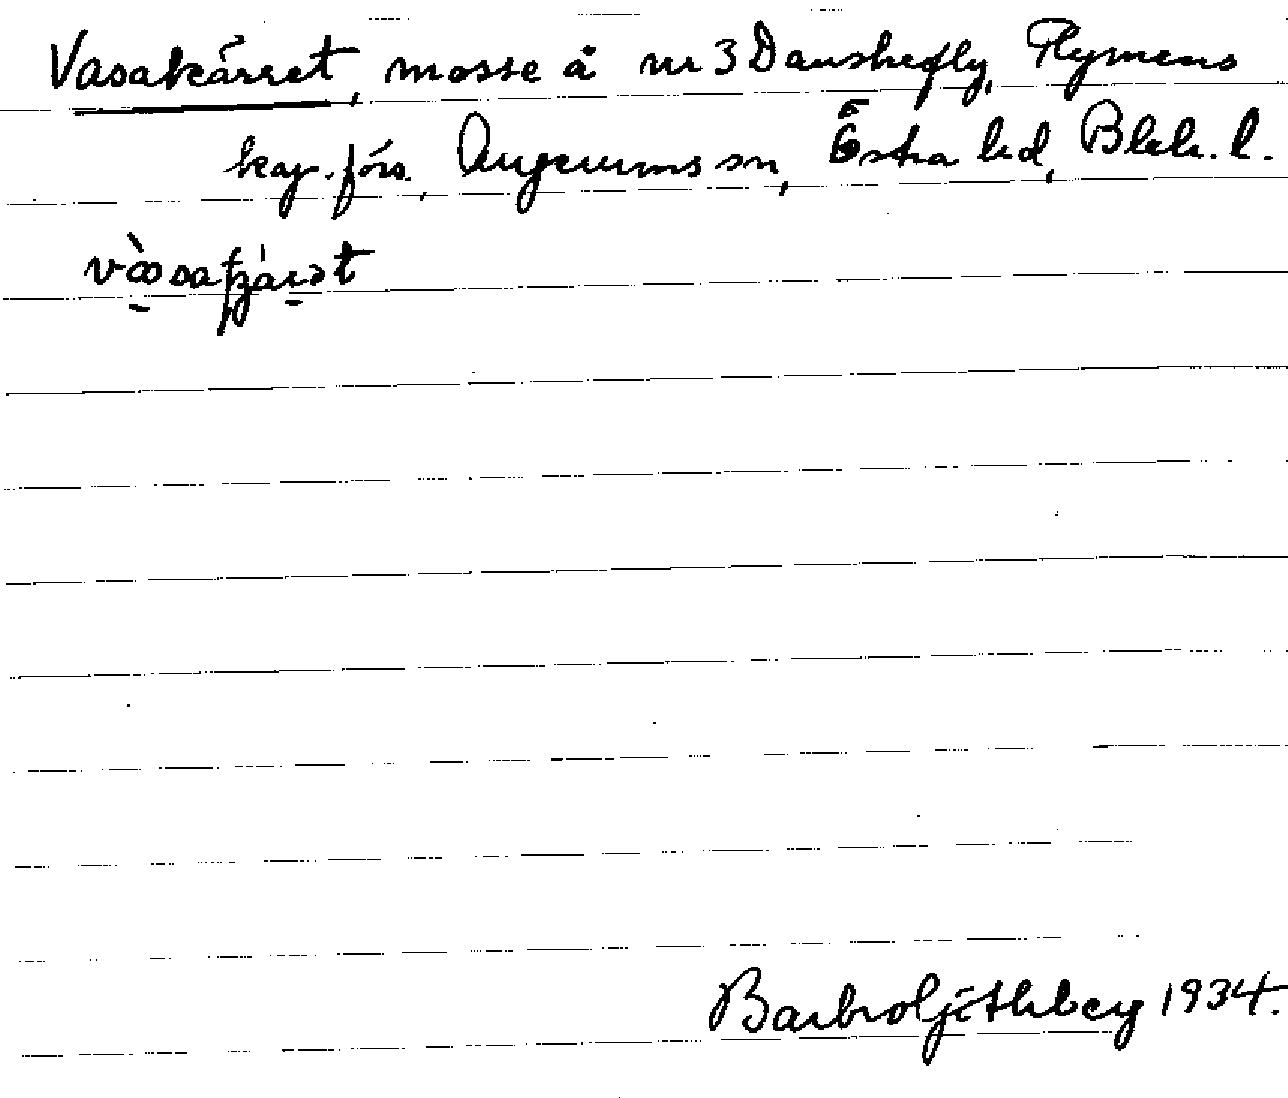 Vasakärret, mosse å nr 3 Danskefly, Flymens
kap.förs., Augerums sn, Östra hd, Blek. l.
Barbro Ljüthberg 1934.